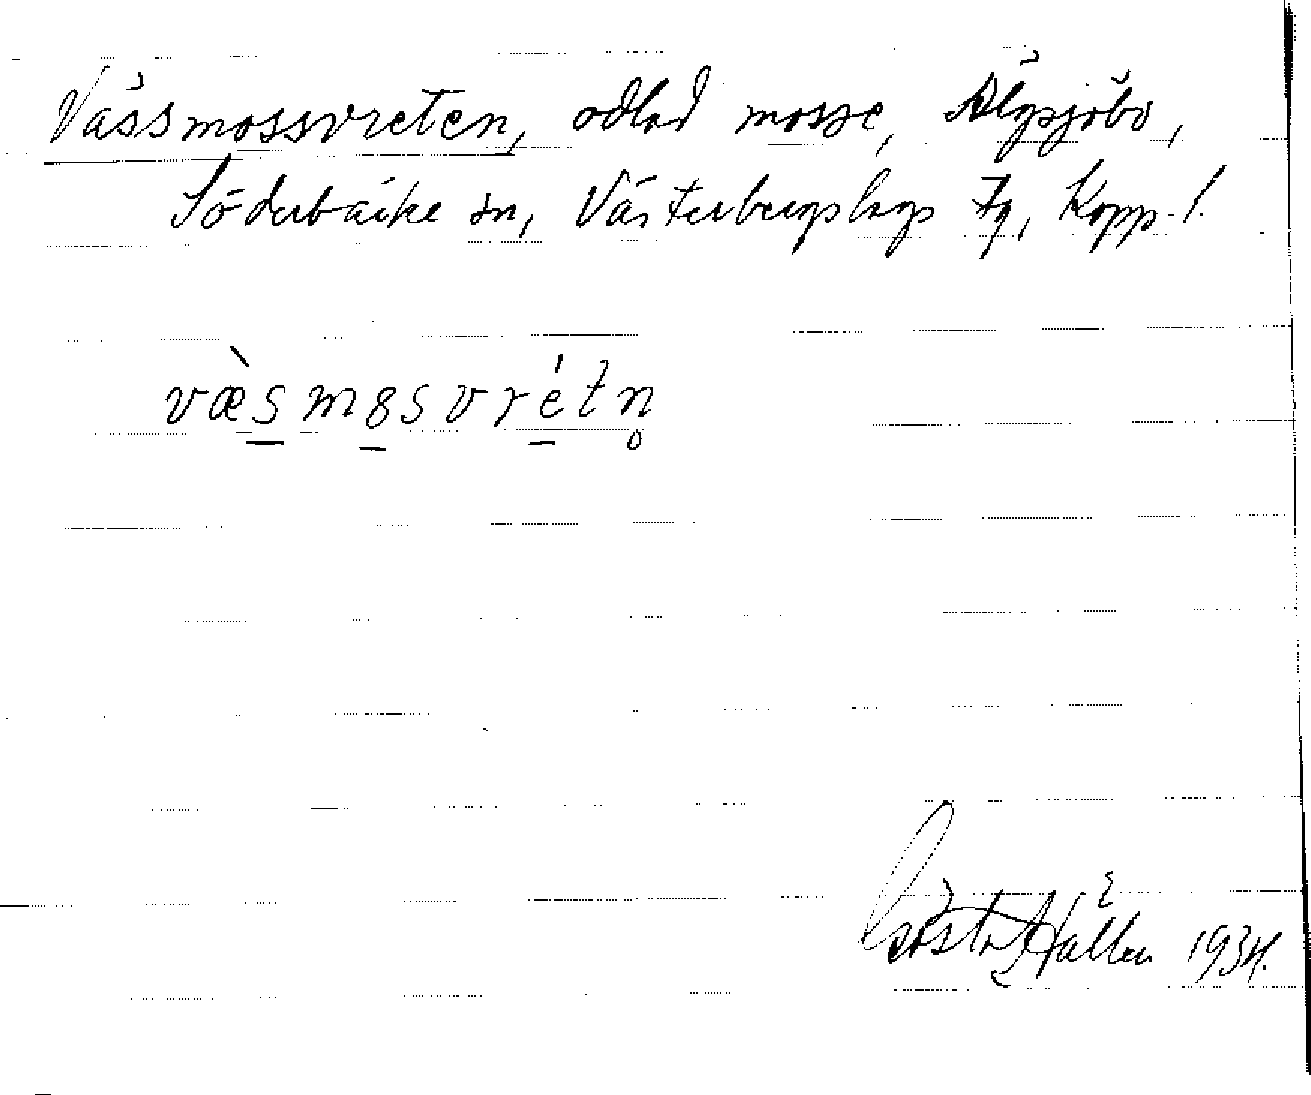 Vässmossvreten, odlad mosse, Älgsjöbo,
Söderbärke sn, Västerbergslags Fg, Kopp. l.
væ̀smɞsvrétn̥
Gösta Hallén 1934.